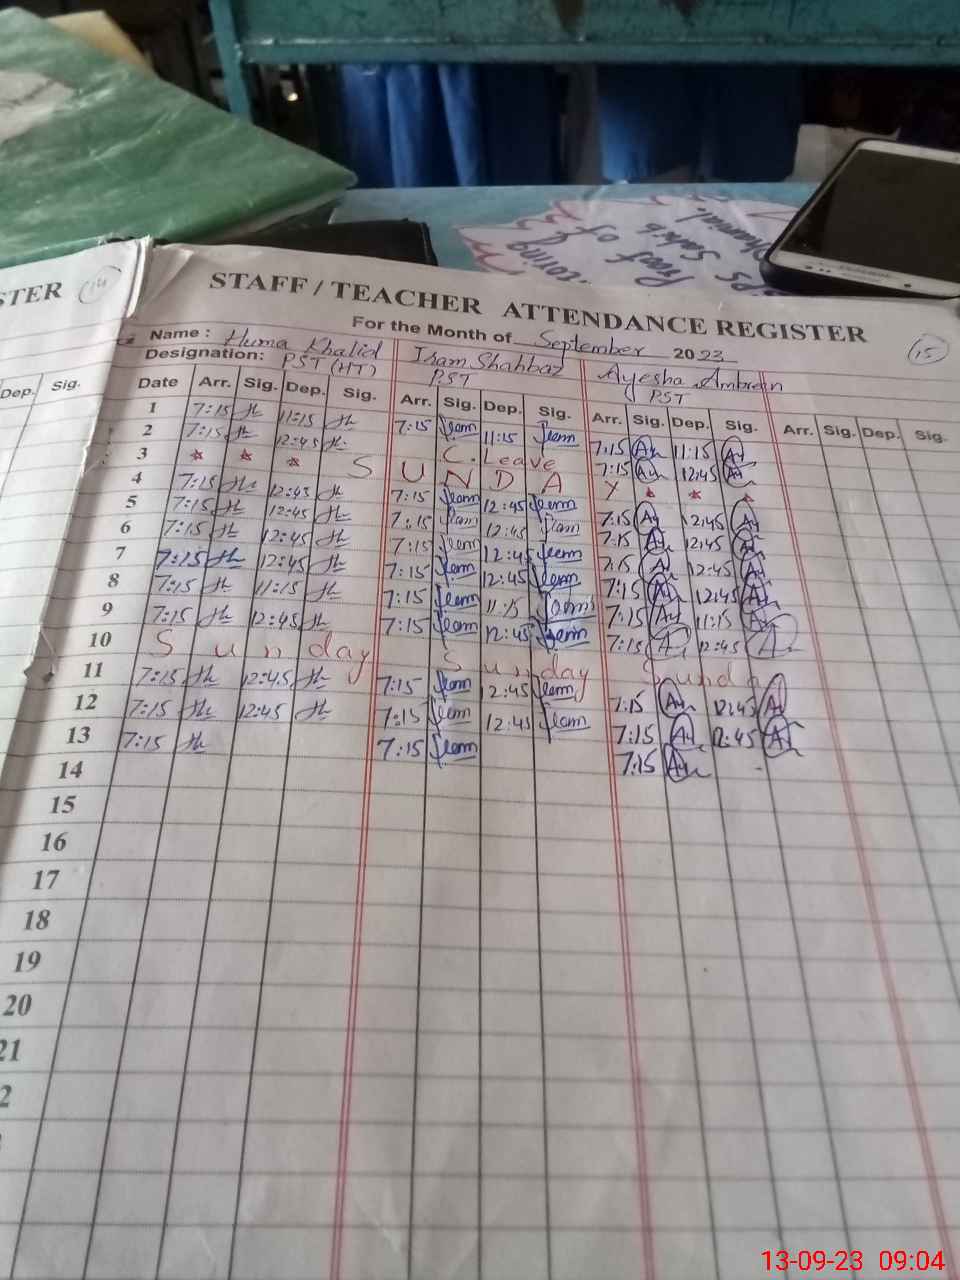 Proof of
STER 14
STAFF / TEACHER ATTENDANCE REGISTER
For the Month of September 2023
15
Name : Huma Khalid Iram Shahbaz Ayesha Ambreen
Designation: PST (HT) PST PST
Dep. Sig. Date Arr. Sig. Dep. Sig. Arr. Sig. Dep. Sig. Arr. Sig. Dep. Sig. Arr. Sig. Dep. Sig.
1 7:15 11:15 7:15 11:15 7:15 11:15
2 7:15 12:45 C. Leave 7:15 12:45
3 S U N D A Y
4 7:15 12:45 7:15 12:45 7:15 12:45
5 7:15 12:45 7:15 12:45 7:15 12:45
6 7:15 12:45 7:15 12:45 7:15 12:45
7 7:15 12:45 7:15 12:45 7:15 12:45
8 7:15 11:15 7:15 11:15 7:15 11:15
9 7:15 12:45 7:15 12:45 7:15 12:45
10 Sunday Sunday Sunday
11 7:15 12:45 7:15 12:45 7:15 12:45
12 7:15 12:45 7:15 12:45 7:15 12:45
13 7:15 7:15 7:15
14
15
16
17
18
19
20
21
2
13-09-23 09:04